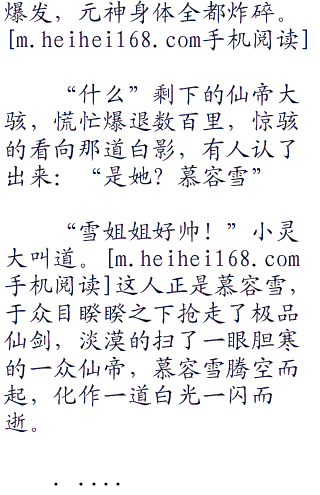 爆发，元神身体全都炸碎。
[m.heihei168.com手机阅读]
“什么”剩下的仙帝大
骇，慌忙爆退数百里，惊骇
的看向那道白影，有人认了
出来：“是她？慕容雪”
“雪姐姐好帅！”小灵
大叫道。[m.heihei168.com
手机阅读]这人正是慕容雪，
于众目睽睽之下抢走了极品
仙剑，淡漠的扫了一眼胆寒
的一众仙帝，慕容雪腾空而
起，化作一道白光一闪而
逝。
. ....